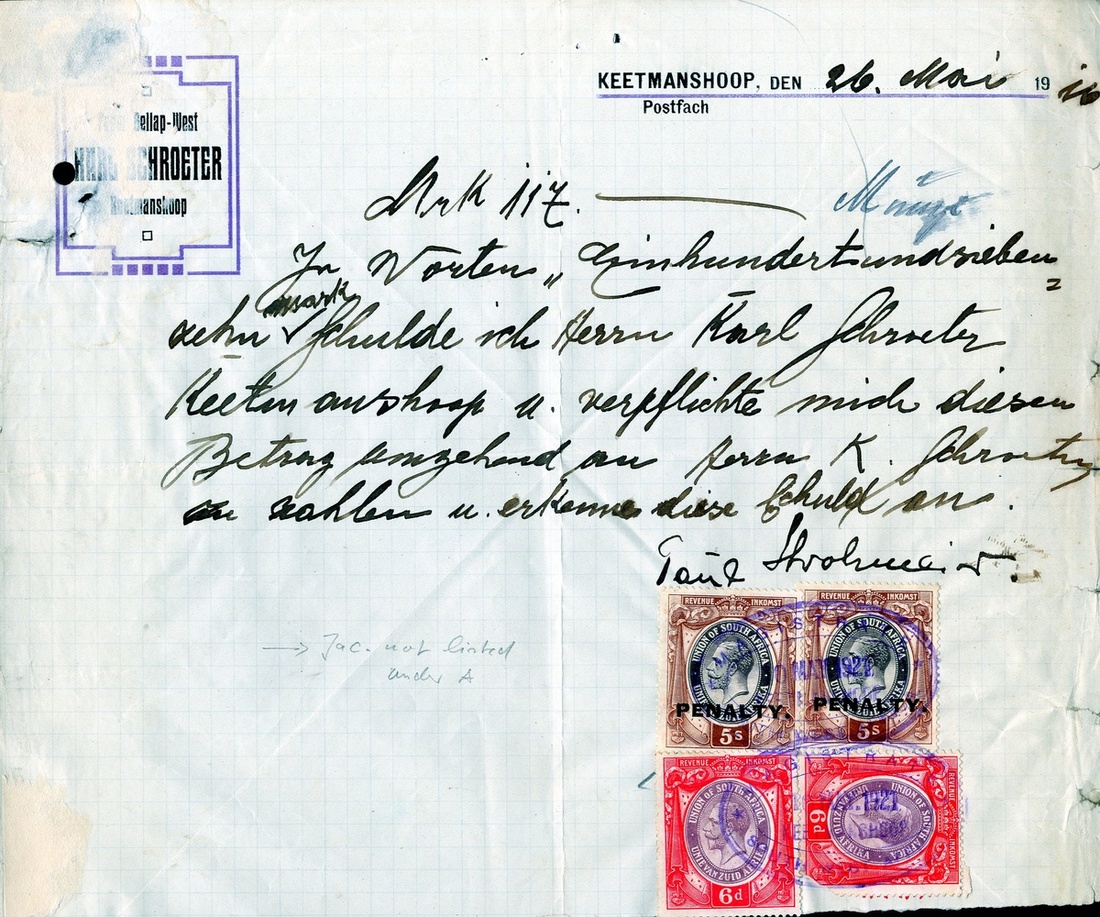 KEETMANSHOOP, DEN 26. Mai 1916
Postfach
Gellap-West
SCHROETER
Keetmanshoop
Mrk 117.
In Worten „Einhundertundsieben=
zehn mark Schulde ich Herrn Karl Schroeter
Keetmanshoop u. verpflichte mich diesen
Betrag umgehend an Herrn K. Schroeter
zu zahlen u. erkenne diese Schuld an.
Paul Strohmeier.
→ Jac. not listed
under A
REVENUE INKOMST
UNION OF SOUTH AFRICA
UNIE VAN ZUID AFRIKA
PENALTY.
5s
REVENUE INKOMST
UNION OF SOUTH AFRICA
UNIE VAN ZUID AFRIKA
PENALTY.
5s
1921
REVENUE INKOMST
UNION OF SOUTH AFRICA
UNIE VAN ZUID AFRIKA
6d
REVENUE INKOMST
UNION OF SOUTH AFRICA
UNIE VAN ZUID AFRIKA
6d
1921